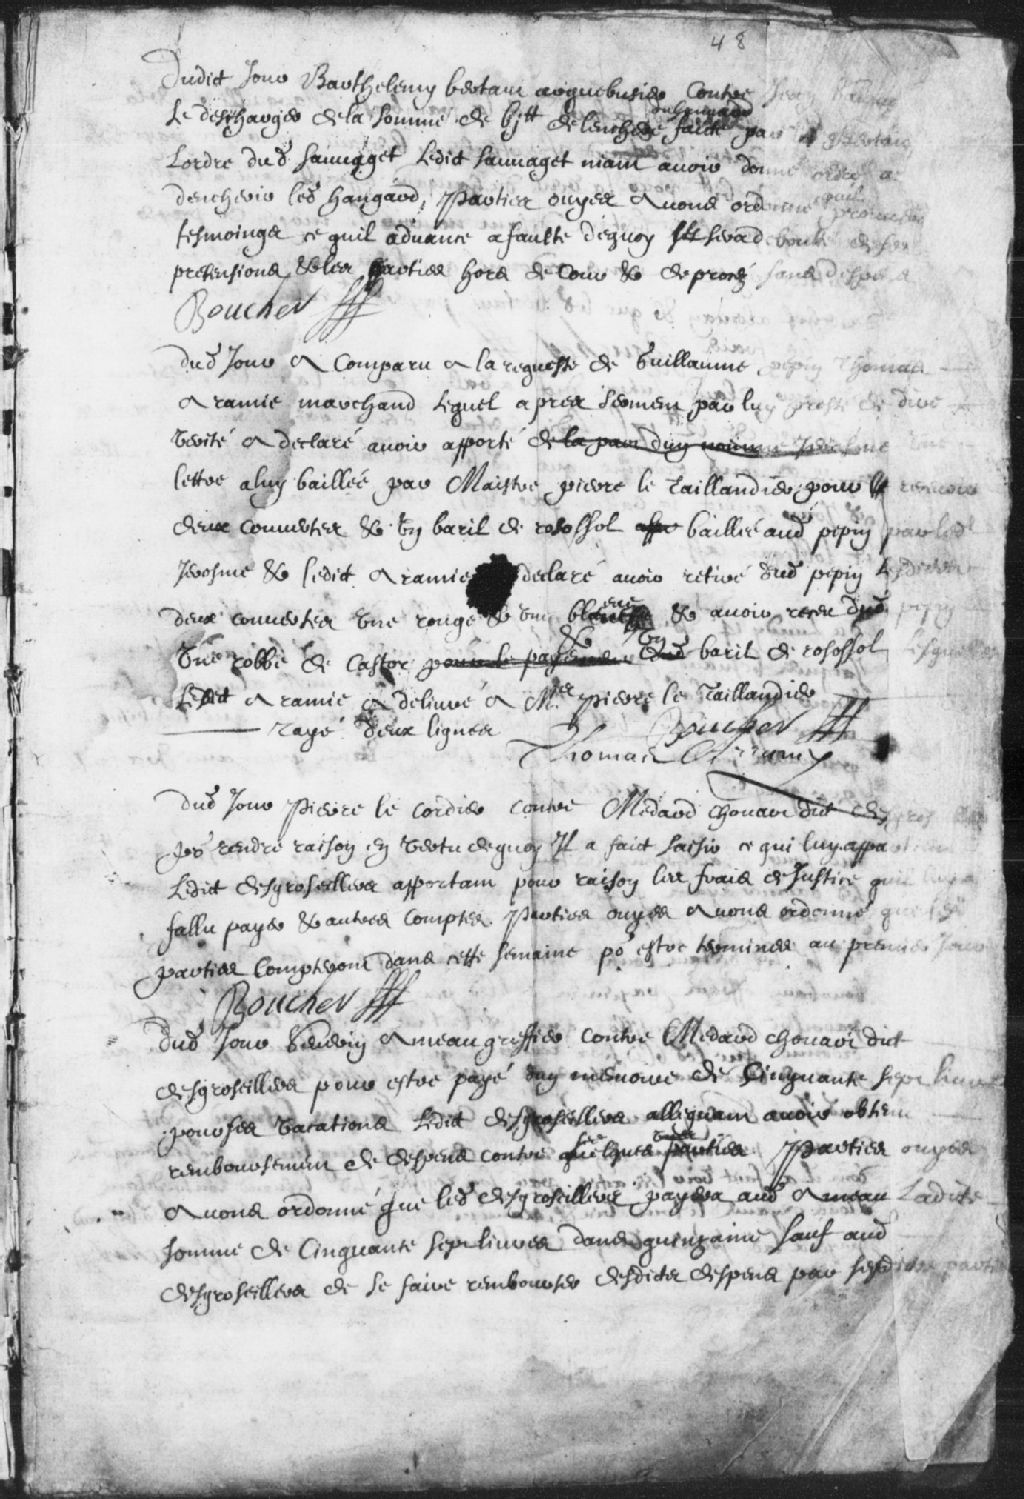 48
Dudict Jour Barthelemy bertaut arquebusier Contre Jean
Le descharger de la somme de bjtt de lenchere faicte par
Lordre dud Sauuaget Ledict Sauuaget niant auoir donné ordre a
dencherir led hangard, Parties ouyes Auons ordonné
tesmoinges ce quil aduance a faulte dequoy sera deboutté de ses
pretensions & les parties hors de Cour & de procés sans despens
Boucher
Dud Jour A Comparu A la requeste de Guillaume pepin Thomas
Aramie marchand Lequel apres serment par luy presté de dire
Verité A declaré auoir apporté de la part dun nommé
lettre a luy baillée par Maistre pierre le Taillandier pour
deux couuertes & Un baril de rosossol baillié aud pepin par led
Jerosme & ledict Aramie declaré auoir retiré dud pepin lesdictes
deux couuertes Une rouge & Une bleue & auoir receu dud pepin
Une robbe de Castor pour le payement & Un dud baril de rosossol Lesquelles
Ledict Aramie A deliuré A Mer pierre le Taillandier
rayé deux lignes
Boucher
Thomas Aramy
Dud Jour Pierre le Cordier contre Medard Chouart dit des gros
por rendre raison en Vertu dequoy Il a faict saisir ce qui luy appa
Ledict desgroseillers apportant pour raison les frais de Justice quil luy a
fallu payer & autres comptes Parties ouyes Auons ordonné que les
parties Compteront dans cette semaine por estre terminee au premier Jour
Boucher
Dud Jour Seuerin Ameau greffier contre Medard Chouart dict
desgroseillers pour estre payé dun memoire de Cinquante sept liures
pour ses Vacations Ledict desgroseillers alleguant auoir obtenu
remboursement de despens contre quelques parties Parties ouyes
Auons ordonné que led desgroseillers payera aud Ameau Ladite
somme de Cinquante sept liures dans quinzaine sauf aud
desgroseillers de se faire rembourser desdictes despens par sesdictes parties